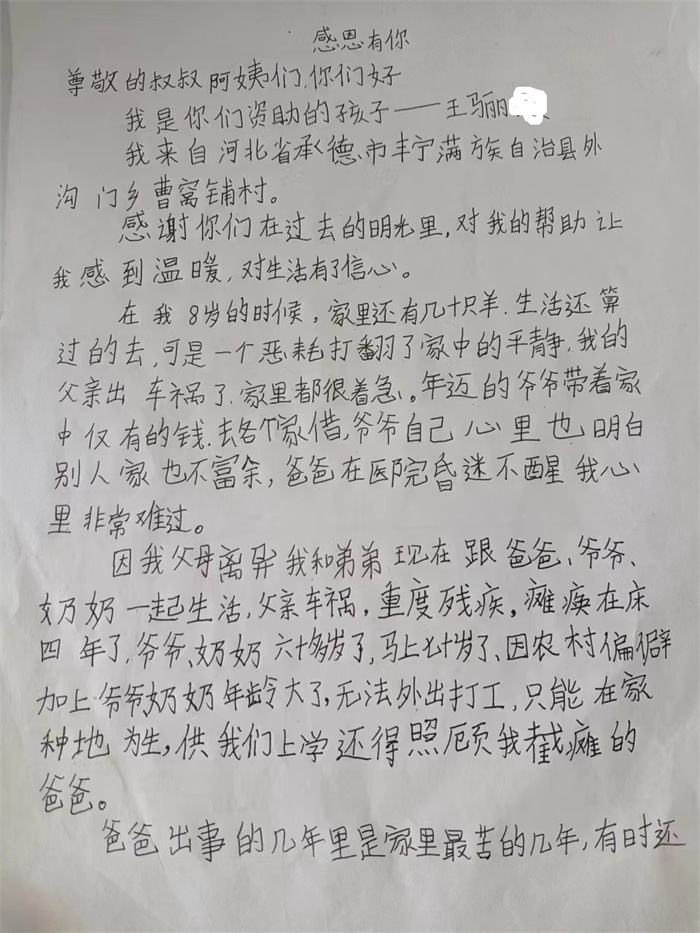 感恩有你
尊敬的叔叔阿姨们,你们好
我是你们资助的孩子——王骊
我来自河北省承德市丰宁满族自治县外
沟门乡曹窝铺村。
感谢你们在过去的明光里,对我的帮助让
我感到温暖,对生活有了信心。
在我8岁的时候,家里还有几十只羊.生活还算
过的去,可是一个恶耗打翻了家中的平静.我的
父亲出车祸了.家里都很着急。年迈的爷爷带着家
中仅有的钱.去各个家借,爷爷自己心里也明白
别人家也不富余,爸爸在医院昏迷不醒我心
里非常难过。
因我父母离异我和弟弟现在跟爸爸、爷爷、
奶奶一起生活,父亲车祸,重度残疾,瘫痪在床
四年了,爷爷、奶奶六十多岁了,马上七十岁了、因农村偏僻
加上爷爷奶奶年龄大了,无法外出打工,只能在家
种地为生,供我们上学还得照顾我截瘫的
爸爸。
爸爸出事的几年里是家里最苦的几年,有时还